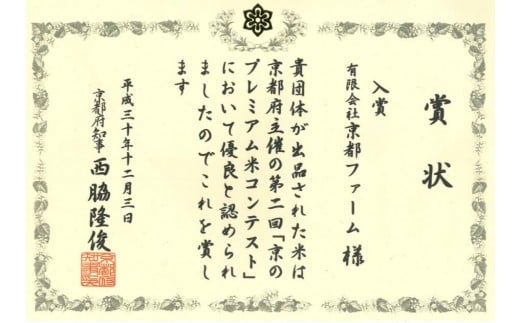 賞状
入賞
有限会社京都ファーム 様
貴団体が出品された米は
京都府主催の第二回「京の
プレミアム米コンテスト」
において優良と認められ
ましたのでこれを賞し
ます
平成三十年十二月三日
京都府知事 西脇隆俊